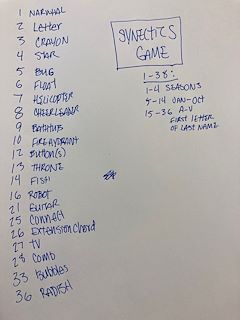 1 NARWHAL
2 Letter
3 CRAYON
4 STAR
5 BUG
6 FLOAT
7 HELICOPTER
8 CHEERLEADER
9 BATHTUB
10 FIRE HYDRANT
12 Button(s)
13 THRONE
14 FISH
16 ROBOT
21 GUITAR
25 Connect
26 Extension Chord
27 TV
28 COMB
33 Bubbles
36 RADISH
SYNECTICS
GAME
1-38:
1-4 SEASONS
5-14 JAN-OCT
15-36 A-V
FIRST LETTER
OF LAST NAME